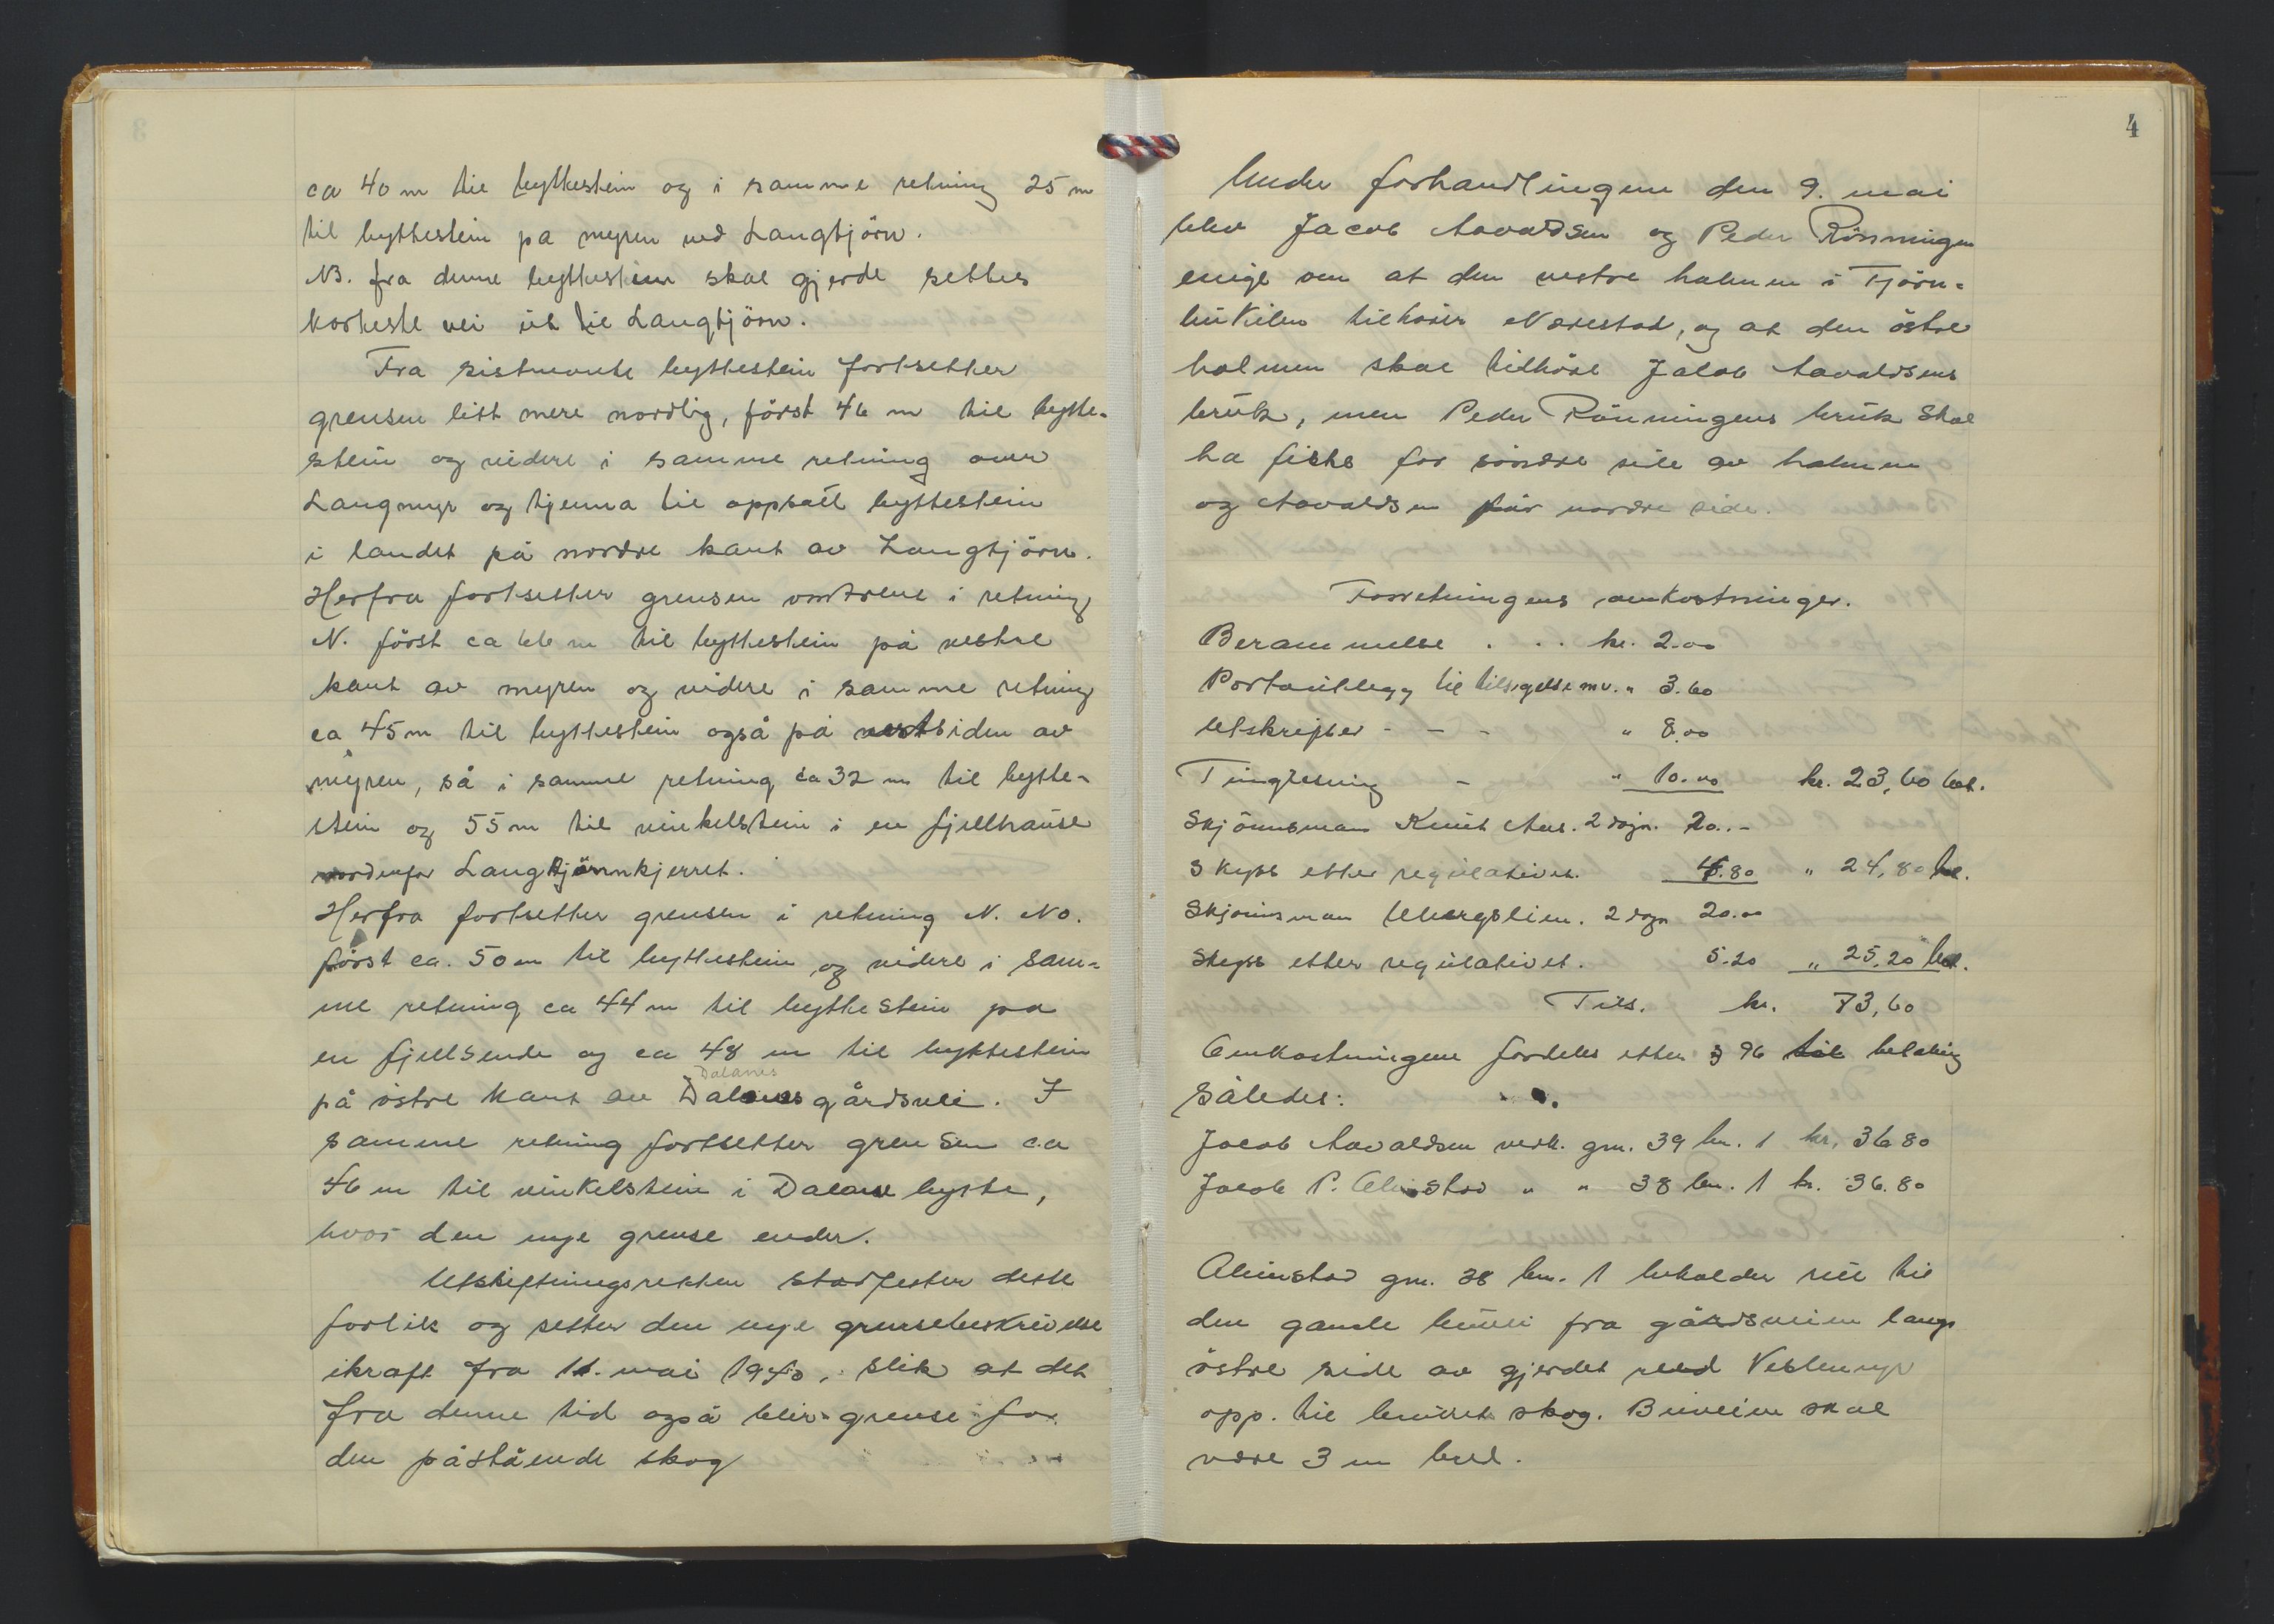 ca 40 m til byttestein og i samme retning 25 m
til byttestein på myren ved Langtjörn.
NB. fra denne byttestein skal gjerde settes
korteste vei ut til Langtjörn.
Fra sistnevnte byttestein fortsetter
grensen litt mere nordlig, först 46 m til bytte-
stein og videre i samme retning over
Langmyr og tjenna til oppsatt byttestein
i landet på nordre kant av Langtjörn.
Herfra fortsetter grensen omtrent i retning
N. först ca 66 m til byttestein på vestre
kant av myren og videre i samme retning
ca 45 m til byttestein også på vestsiden av
myren, så i samme retning ca 32 m til bytte-
stein og 55 m til vinkelstein i en fjellhause
nordenfor Langtjörnnkjerret.
Herfra fortsetter grensen i retning N. NO.
först ca. 50 m til byttestein og videre i sam-
me retning ca 44 m til byttestein på
en fjellsende og ca 48 m til byttestein
Dalanes
på östre kant av Dalanes gårdsvei. I
samme retning fortsetter grensen ca
46 m til vinkelstein i Dalane bytte,
hvor den nye grense ender.
Utskiftningsretten stadfester dette
forlik og setter den nye grensebeskrivelse
ikraft fra 11. mai 1940, slik at det
fra denne tid også blir grense for
den påstående skog
4
Under forhandlingene den 9. mai
blev Jacob Aavaldsen og Peder Rönningen
enige om at den vestre holmen i Tjörn-
bukilen tilhörer Nærestad, og at den östre
holmen skal tilhöre Jakob Aavaldsens
bruk, men Peder Rönningens bruk skal
ha fiske for söndre side av holmen
og Aavaldsen for nordre side.
Forretningens omkostninger.
Berammelse . . . kr. 2.00
Portoutlegg til tilsigelse mv. " 3.60
Utskrifter - - - " 8.00
Tinglesning - " 10.00 kr. 23,60 bet.
Skjönnsmann Knut Aas. 2 dagn. 20.-
Skyss etter regulativet. 4.80 " 24,80 bet.
Skjönnsmann Ubergslien. 2 dagn 20.00
Skyss etter regulativet. 5.20 " 25,20 bet.
Tils. kr. 73,60
Omkostningene fordeles etter § 96 til betaling
således:
Jacob Aavaldsen vedk. gnr. 39 bn. 1 kr. 36.80
Jacob P. Alinstad " " 38 bn. 1 kr. 36.80
Alinstad gnr. 38 bn. 1 beholder rett til
den gamle buvei fra gårdsveien langs
östre side av gjerdet ved Veslemyr
opp. til brukets skog. Buveien skal
være 3 m bred.